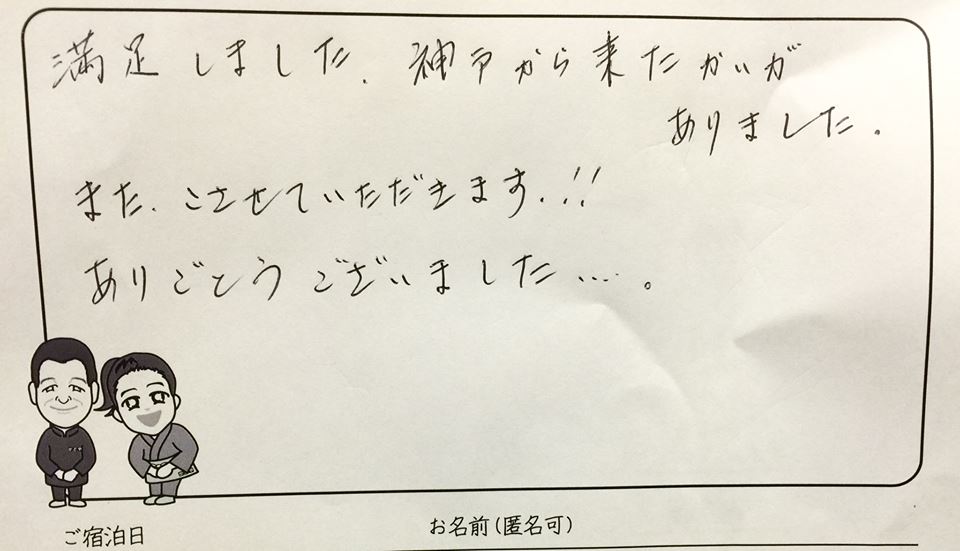 満足しました. 神戸から来たかいが
ありました.
また. こさせていただきます.!!
ありごとうございました…。
ご宿泊日
お名前(匿名可)